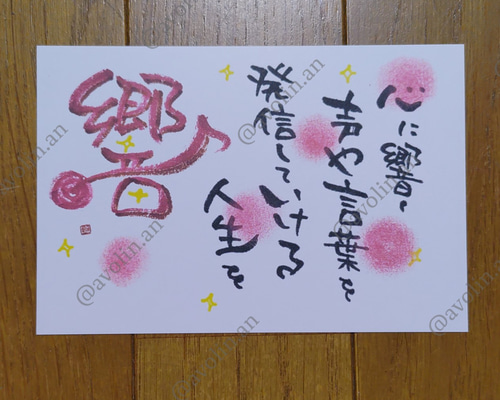 心に響く
声や言葉を
発信していける
人生を
響
@avolin.an
@avolin.an
@avolin.an
@avolin.an
@avolin.an
@avolin.an
@avolin.an